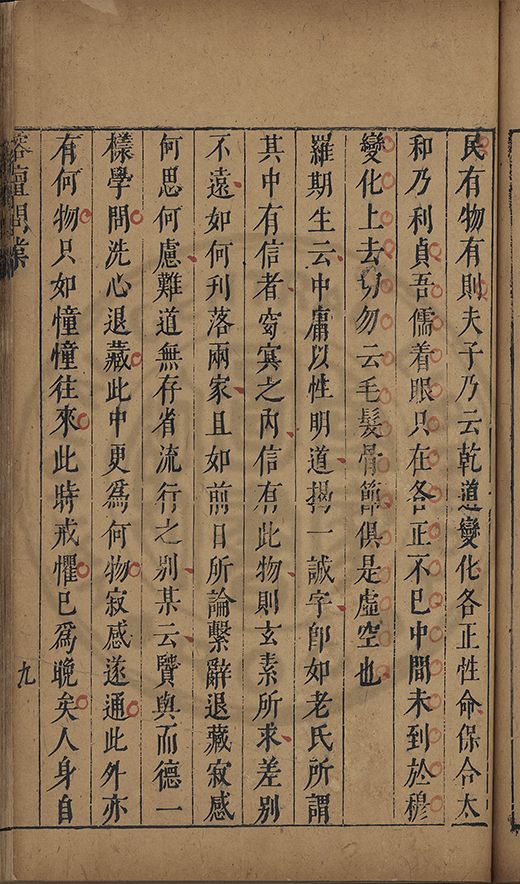 民有物有則夫子乃云乾道變化各正性命保合太
和乃利貞吾儒着眼只在各正不巳中間未到於穆
變化上去切勿云毛髮骨節俱是虛空也
羅期生云中庸以性明道揭一誠字卽如老氏所謂
其中有信者窈冥之內信有此物則玄素所求差別
不遠如何刋落兩家且如前日所論繫辭退藏寂感
何思何慮難道無存省流行之別某云賢與而德一
樣學問洗心退藏此中更爲何物寂感遂通此外亦
有何物只如憧憧往來此時戒懼巳爲晚矣人身自
榕壇問業
九